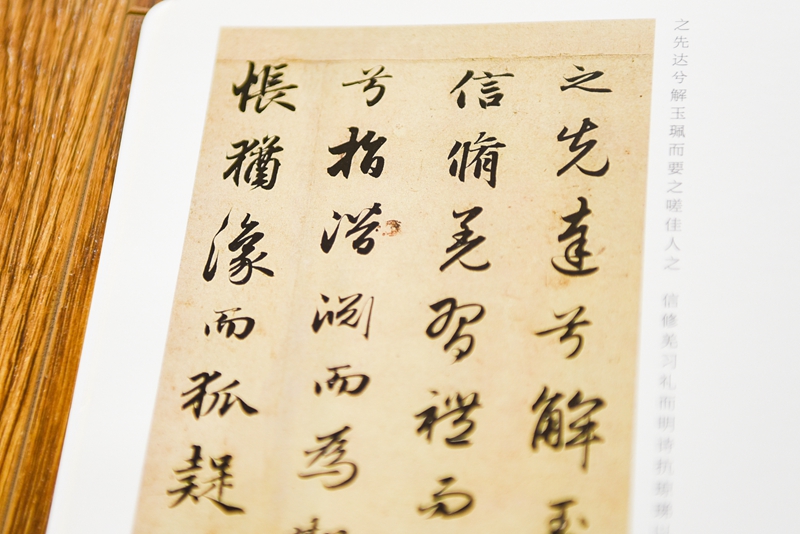 之先达兮解玉珮而要之嗟佳人之 信修羌习礼而明诗抗
之先達兮解玉
信脩羌習禮而
兮指潛淵而為
悵猶豫而狐疑